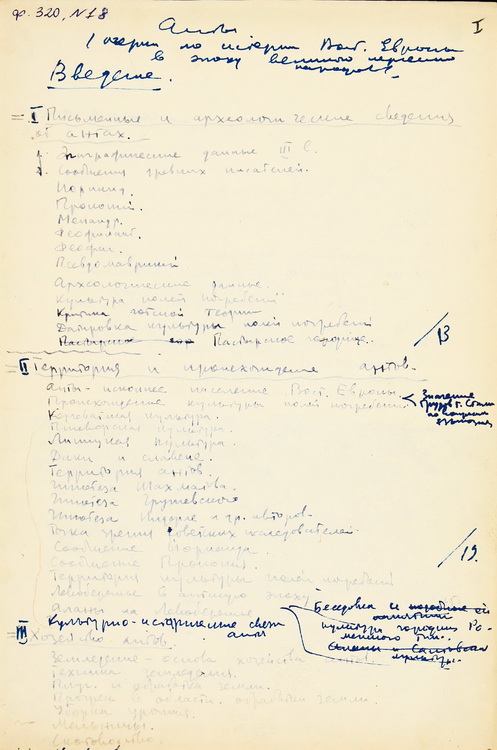 ф. 320, N 18
I
Анты
(очерки по истории Вост. Европы
в эпоху великого переселения
народов).
Введение.
I Письменные и археологические сведения
об антах.
1. Эпиграфические данные III в.
2. Сообщения древних писателей.
Иорнанд.
Прокопий.
Менандр.
Феофилакт.
Феофан.
Псевдомаврикий
Археологические данные.
Культура полей погребений
Критика готской теории
Датировка культуры полей погребений
Пастырское городище.
/13
II Территория и происхождение антов.
Анты - исконное население Вост. Европы.
Происхождение культуры полей погребений.
Значение
трудов т. Сталина
по вопросам
языкознания
Корчеватская культура.
Пшеворская культура.
Липицкая культура.
Даки и славяне.
Территория антов.
Гипотеза Шахматова.
Гипотеза Грушевского
Гипотеза Нидерле и др. авторов.
Точка зрения советских исследователей.
Сообщение Иорнанда.
Сообщение Прокопия.
/19.
Территория культуры полей погребений
Левобережье в антскую эпоху
Аланы на Левобережье
Культурно-исторические связи
антов
Беседовка и подобные ей
памятники
культура городищ Ро-
менского типа.
Аланы и Салтовская
культура.
III Хозяйство антов.
Земледелие - основа хозяйства антов.
Техника земледелия.
Плуг и обработка земли.
Прогресс в области обработки земли.
Уборка урожая.
Мельницы.
Скотоводство.